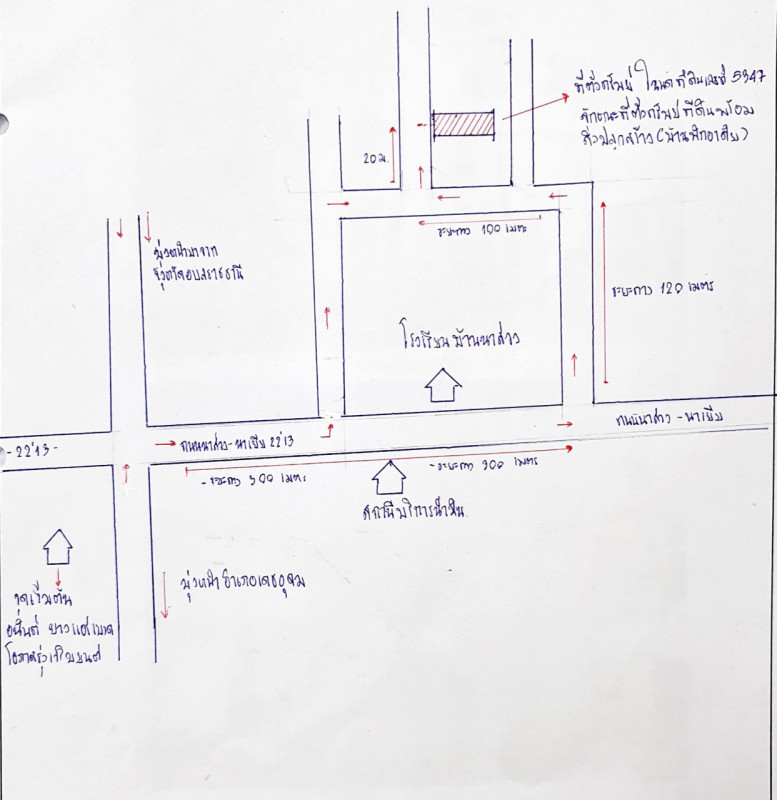 ที่ตั้งทรัพย์ โฉนดที่ดินเลขที่ 5947
ลักษณะที่ตั้งทรัพย์ ที่ดินพร้อม
สิ่งปลูกสร้าง (บ้านพักอาศัย)
20 ม.
ระยะทาง 100 เมตร
มุ่งหน้ามาจาก
จังหวัดอุบลราชธานี
ระยะทาง 120 เมตร
โรงเรียนบ้านนาส่วง
ถนนนาส่วง-นาเยีย
ถนนนาส่วง-นาเยีย 2213
-2213-
-ระยะทาง 500 เมตร
-ระยะทาง 900 เมตร
สถานีบริการน้ำมัน
มุ่งหน้าอำเภอเดชอุดม
จุดเริ่มต้น